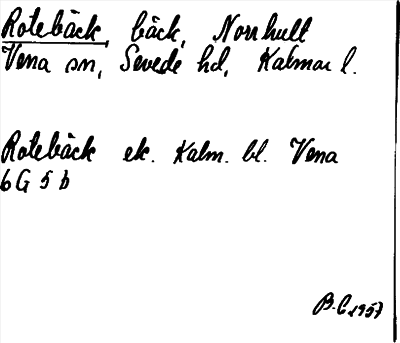 Rotebäck, bäck, Norrhult
Vena sn, Sevede hd, Kalmar l.
Rotebäck ek. Kalm. bl. Vena
6 G 5 b
B.C 1957